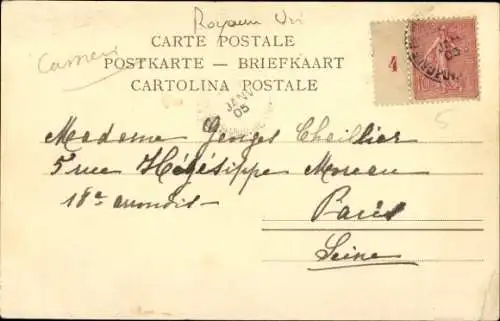 Royaum Uni
CARTE POSTALE
POSTKARTE — BRIEFKAART
CARTOLINA POSTALE
4
JANV
05
JANV
05
Madame Georges Cheillier
5 rue Hégésippe Moreau
18e arrondis-
Paris
Seine
5